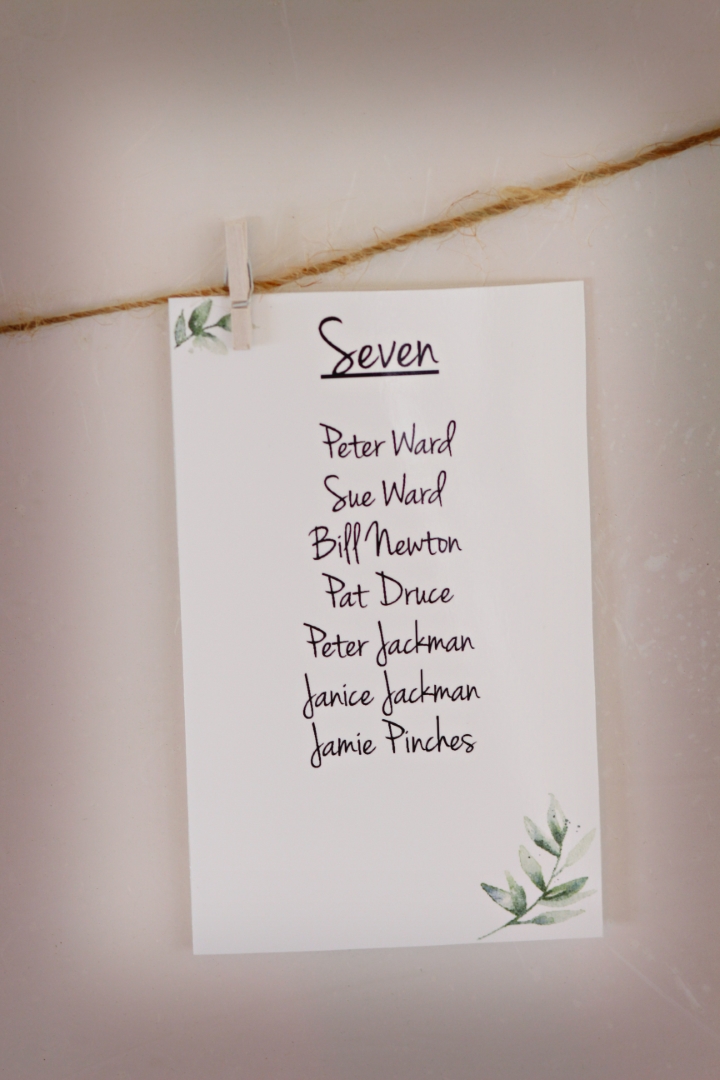 Seven
Peter Ward
Sue Ward
Bill Newton
Pat Druce
Peter Jackman
Janice Jackman
Jamie Pinches